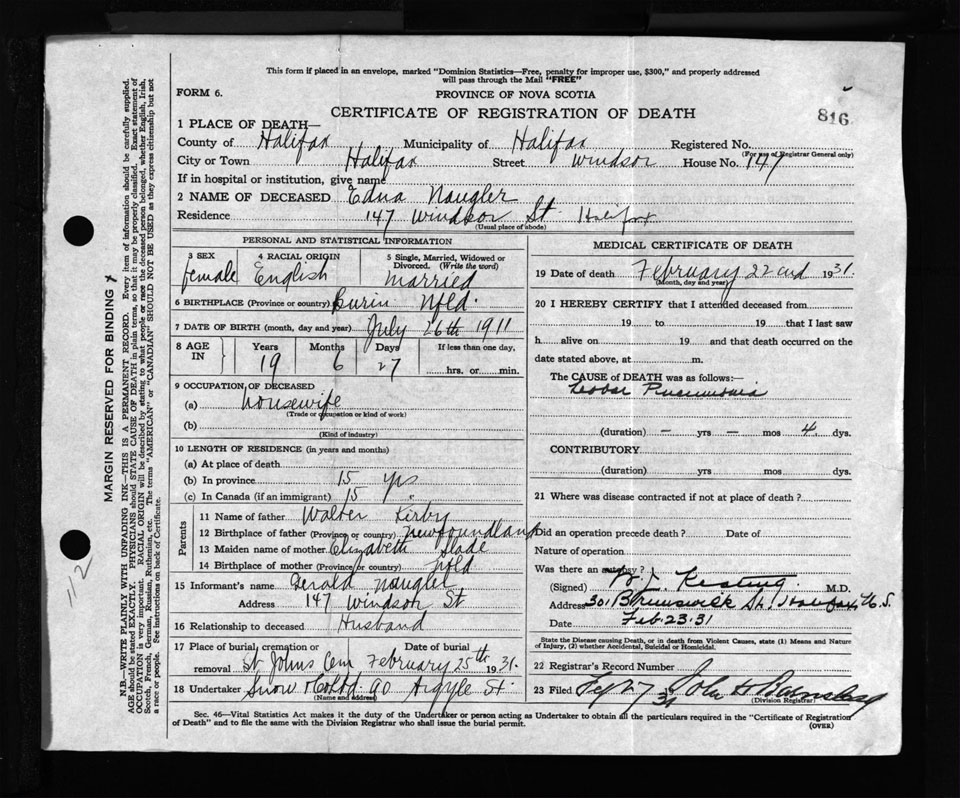 This form if placed in an envelope, marked "Dominion Statistics—Free, penalty for improper use, $300," and properly addressed
will pass through the Mail "FREE"
FORM 6.
PROVINCE OF NOVA SCOTIA
CERTIFICATE OF REGISTRATION OF DEATH
816
1 PLACE OF DEATH—
County of Halifax Municipality of Halifax Registered No.
(For use of Registrar General only)
City or Town Halifax Street Windsor House No. 147
If in hospital or institution, give name
2 NAME OF DECEASED Edna Naugler
Residence 147 Windsor St Halifax
(Usual place of abode)
PERSONAL AND STATISTICAL INFORMATION
3 SEX female
4 RACIAL ORIGIN English
5 Single, Married, Widowed or Divorced. (Write the word) Married
6 BIRTHPLACE (Province or country) Burin Nfld.
7 DATE OF BIRTH (month, day and year) July 26th 1911
8 AGE IN Years Months Days If less than one day,
19 6 27 hrs. or min.
9 OCCUPATION OF DECEASED
(a) housewife
(Trade or occupation or kind of work)
(b)
(Kind of industry)
10 LENGTH OF RESIDENCE (in years and months)
(a) At place of death
(b) In province 15 yrs
(c) In Canada (if an immigrant) 15 "
Parents
11 Name of father Walter Kirby
12 Birthplace of father (Province or country) Newfoundland
13 Maiden name of mother Elizabeth Slade
14 Birthplace of mother (Province or country) Nfld
15 Informant's name Gerald Naugler
Address 147 Windsor St
16 Relationship to deceased Husband
17 Place of burial, cremation or removal Date of burial
St Johns Cem February 25th 1931.
18 Undertaker Snow & Co Ltd 90 Argyle St.
(Name and address)
MEDICAL CERTIFICATE OF DEATH
19 Date of death February 22nd 1931.
(Month, day and year)
20 I HEREBY CERTIFY that I attended deceased from
19 to 19 that I last saw
h alive on 19 and that death occurred on the
date stated above, at m.
The CAUSE of DEATH was as follows:—
Lobar Pneumonia
(duration) — yrs — mos 4 dys.
CONTRIBUTORY
(duration) yrs mos dys.
21 Where was disease contracted if not at place of death?
Did an operation precede death? Date of
Nature of operation
Was there an autopsy?
(Signed) Keating M.D.
Address 301 Brunswick St. Halifax, N.S.
Date Feb. 23. 31
State the Disease causing Death, or in death from Violent Causes, state (1) Means and Nature
of Injury, (2) whether Accidental, Suicidal or Homicidal.
22 Registrar's Record Number
23 Filed 27 31 John
(Division Registrar)
Sec. 46—Vital Statistics Act makes it the duty of the Undertaker or person acting as Undertaker to obtain all the particulars required in the "Certificate of Registration
of Death" and to file the same with the Division Registrar who shall issue the burial permit.
(OVER)
MARGIN RESERVED FOR BINDING
N.B.—WRITE PLAINLY WITH UNFADING INK—THIS IS A PERMANENT RECORD. Every item of information should be carefully supplied.
AGE should be stated EXACTLY. PHYSICIANS should STATE CAUSE OF DEATH in plain terms, so that it may be properly classified. Exact statement of
OCCUPATION is very important. RACIAL ORIGIN will be described by stating to what people or race the deceased person belonged, whether English, Irish,
Scotch, French, German, Russian, Ruthenian, etc. The terms "AMERICAN" or "CANADIAN" SHOULD NOT BE USED as they express citizenship but not
a race or people. See instructions on back of Certificate.